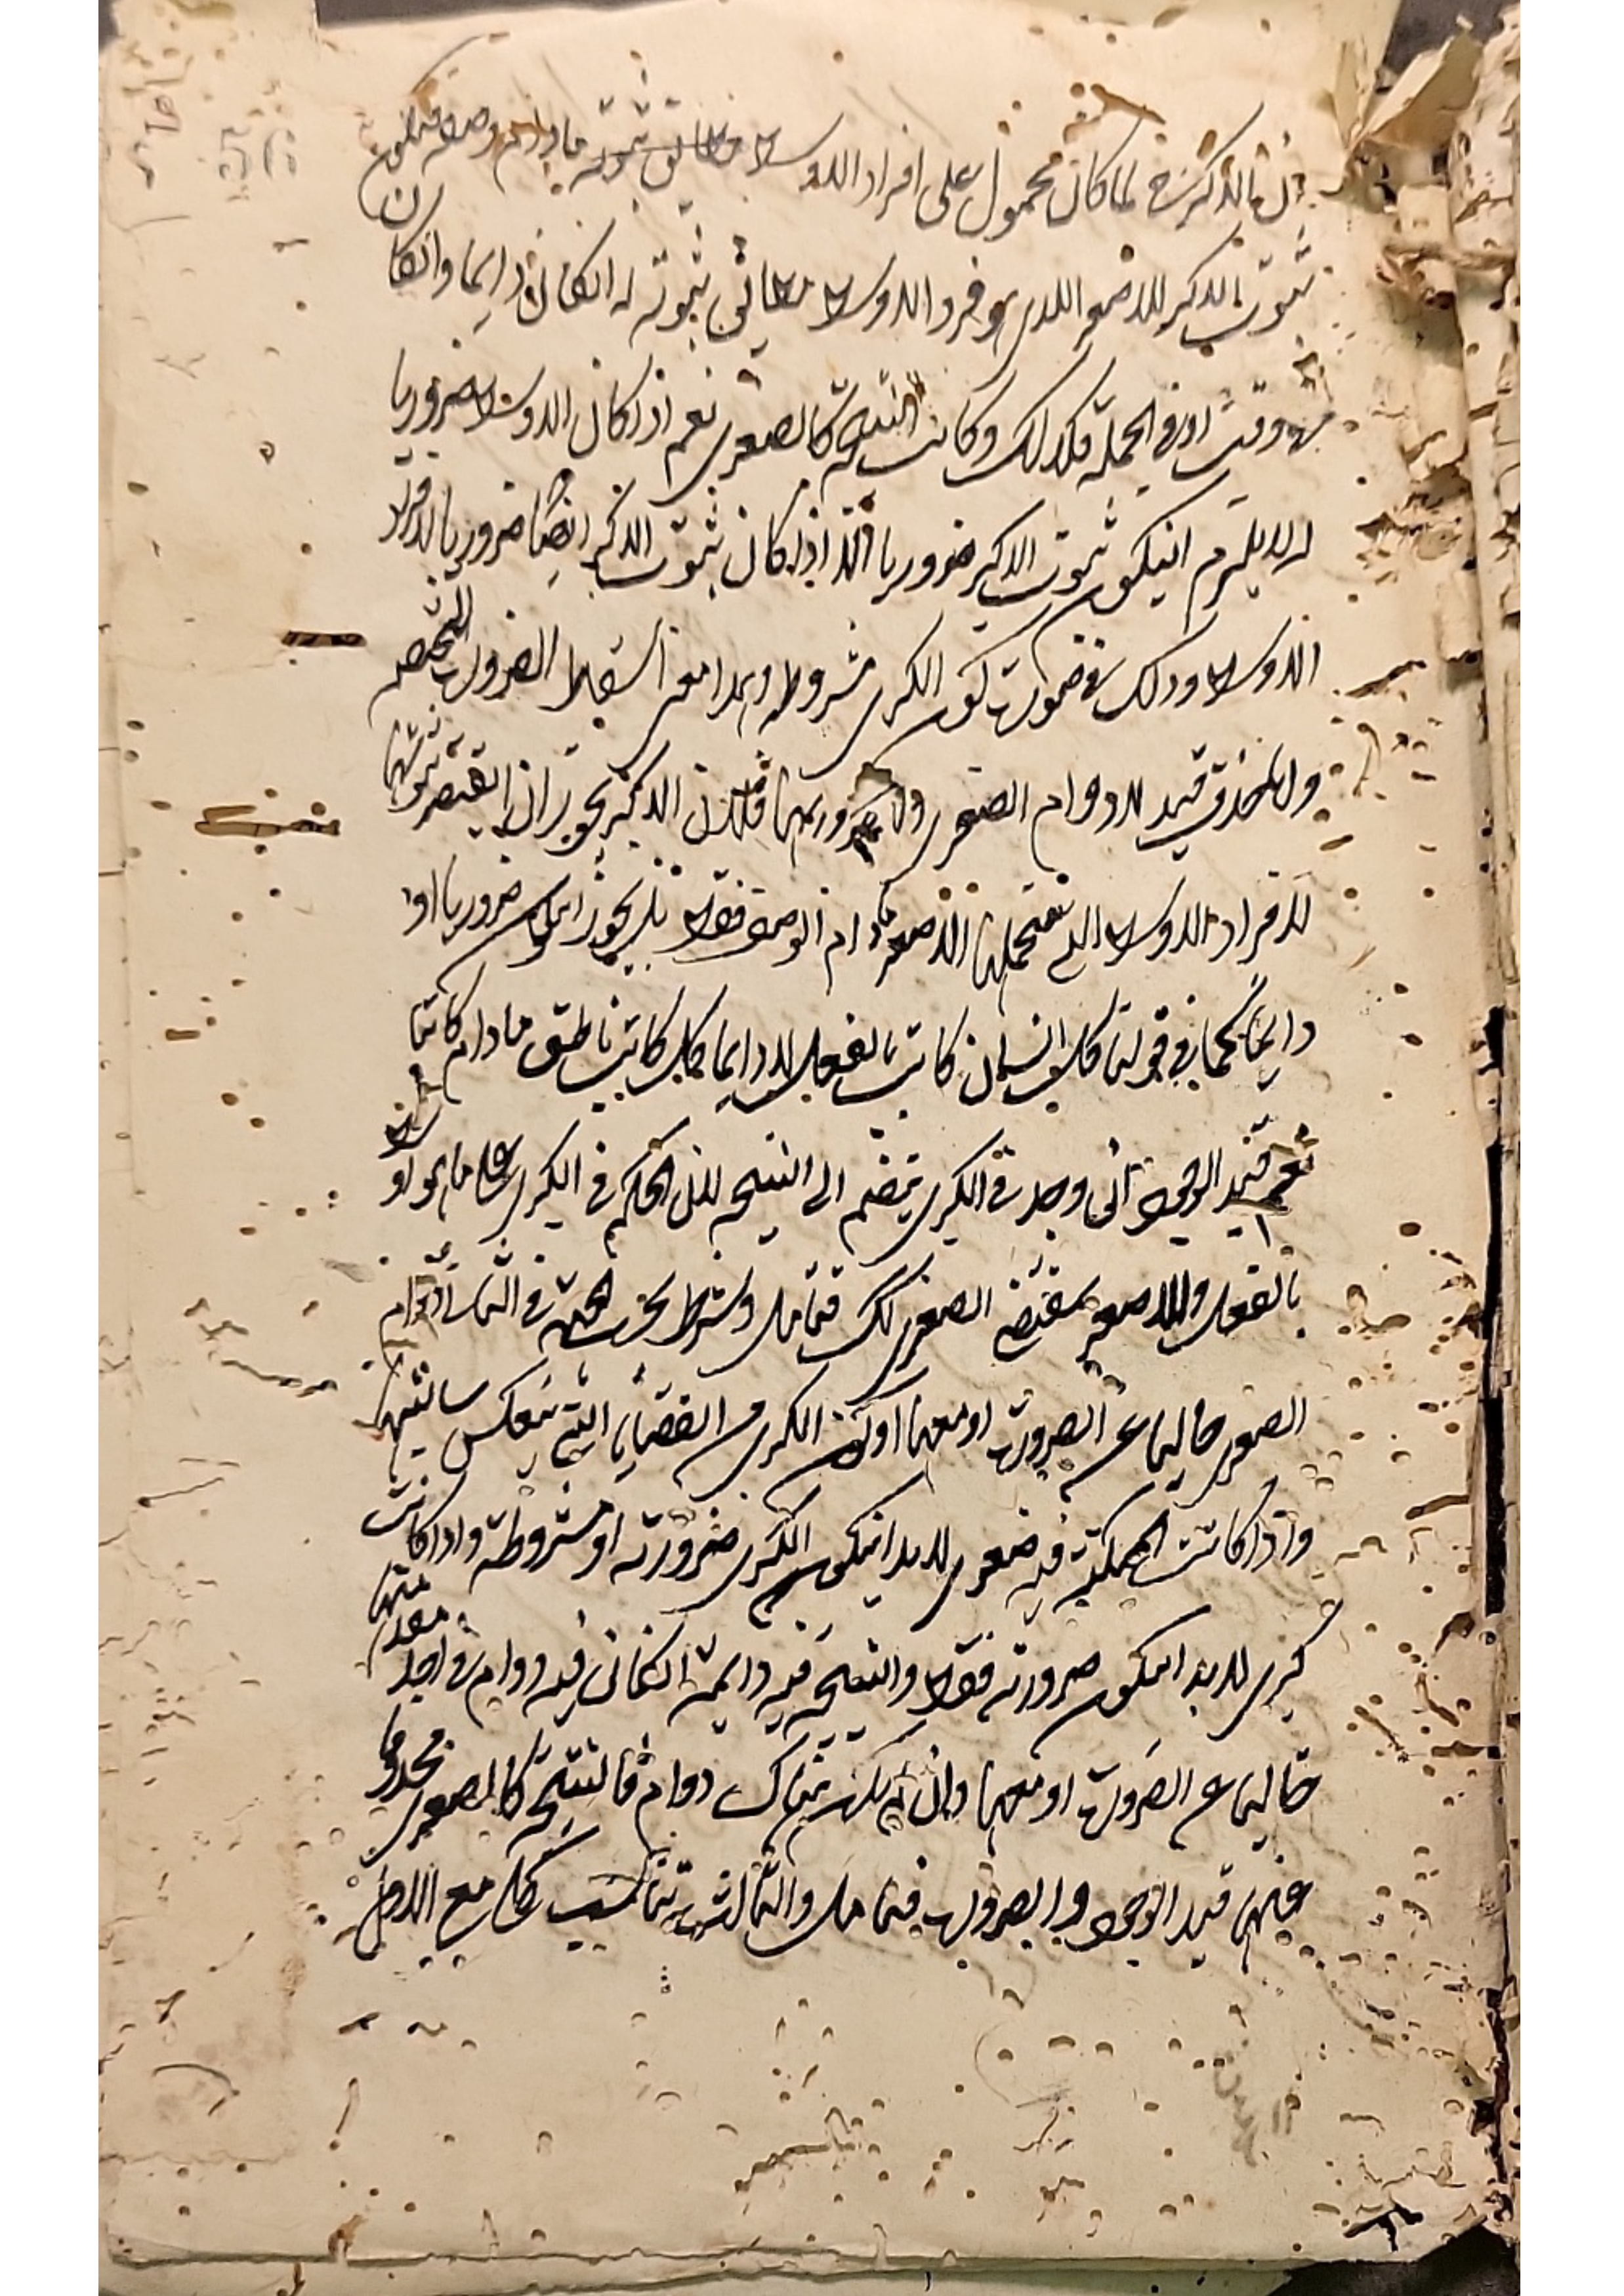 لما كان محمول على افراد الاوسط ما دام وصفه فيكون
ثبوت الاكبر للاصغر الذي هو فرد الاوسط مطابق ثبوته له انكان دايما وانكان
في وقت او في الجملة فكذلك وكانت النتيجة كالصغرى نعم اذا كان الاوسط ضروريا
له لا يلزم ان يكون ثبوت الاكبر ضروريا الا اذا كان ثبوت الاكبر ايضا ضروريا لافراد
الاوسط وذلك في صورت كون الكبرى مشروطة وهذا معنى اسقاط الضرورت المختصة
وانما يحذف قيد لادوام الصغرى ولا ضرورتها فلان الاكبر يجوز ان لا يقتصر ثبوتها
لافراد الاوسط التي تحملها الاصغر ما دام الوصف فقط بل يجوز ان يكون ضروريا او
دايما كما في قولنا كل انسان كاتب بالفعل لا دايما وكل كاتب ناطق ما دام كاتبا
نعم قيد الوجود ان وجد في الكبرى ينضم الى النتيجة لان الحكم في الكبرى على ما هو اوسط
بالفعل والاصغر بمقتضى الصغرى كذلك فتامل وشرط بحسب الجهة في الثاني دوام
الصغرى خاليا عن الضرورت او معها او كون الكبرى من القضايا التي تنعكس سالبتها
واذا كانت الممكنة فيه صغرى لابد ان يكون الكبرى ضرورية او مشروطة واذا كانت
كبرى لابد ان يكون ضرورية فقط والنتيجة فيه دايمة ان كان فيه دوام في احد مقدمتيها
خاليا عن الضرورت او معها وان لم يكن هناك دوام فالنتيجة كالصغرى محذوفا
عنها قيد الوجود والضرورت فتامل والثالث تناسب كل مع الاول